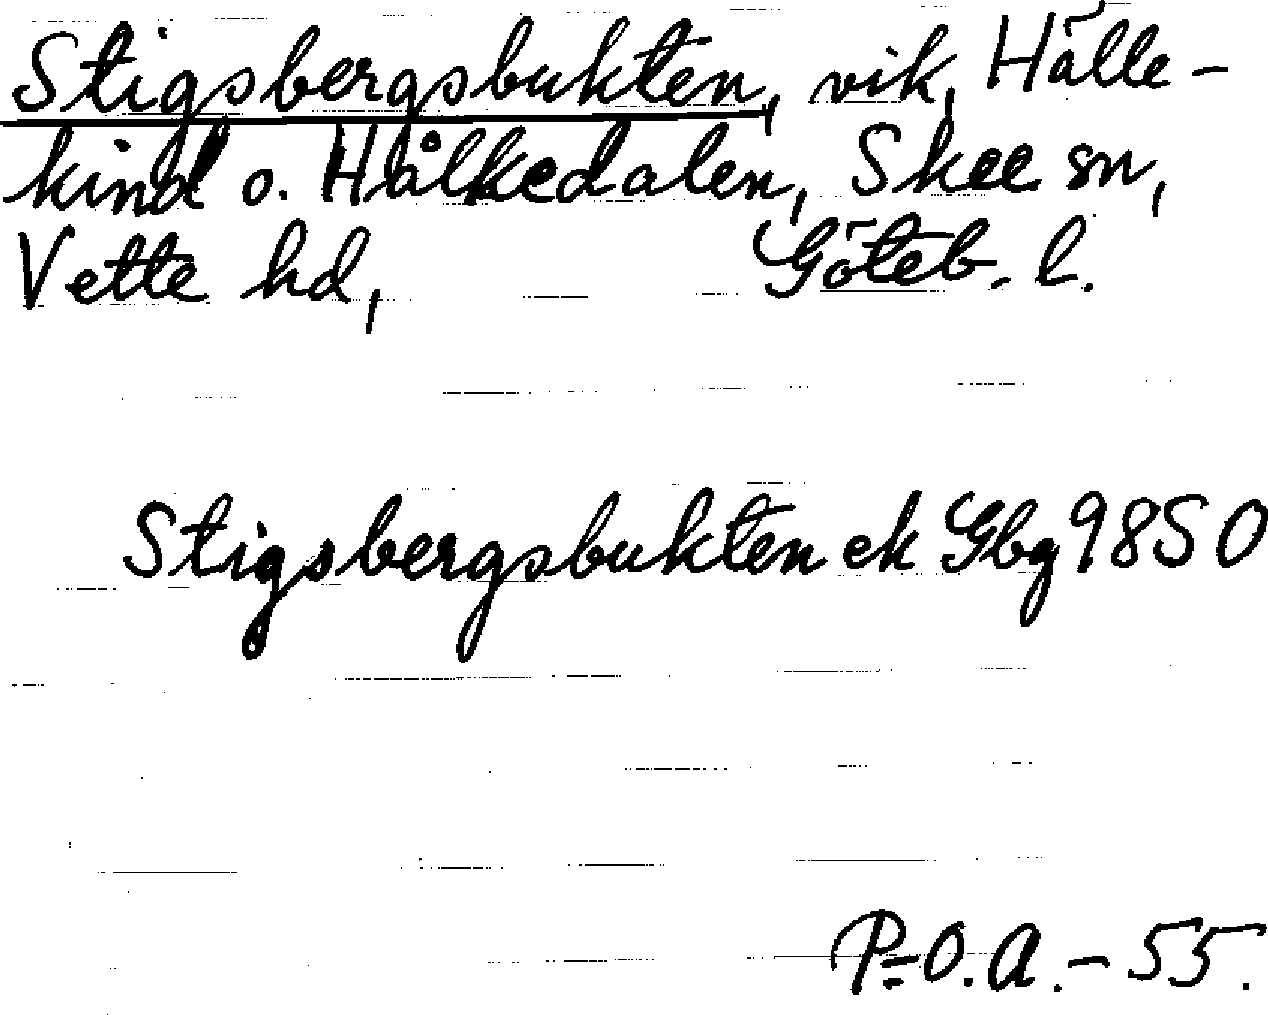 Stigsbergsbukten, vik, Hälle-
kind o. Hålkedalen, Skee sn,
Vette hd, Göteb. l.
Stigsbergsbukten ek Gbg 9850
P-O.A.-55.